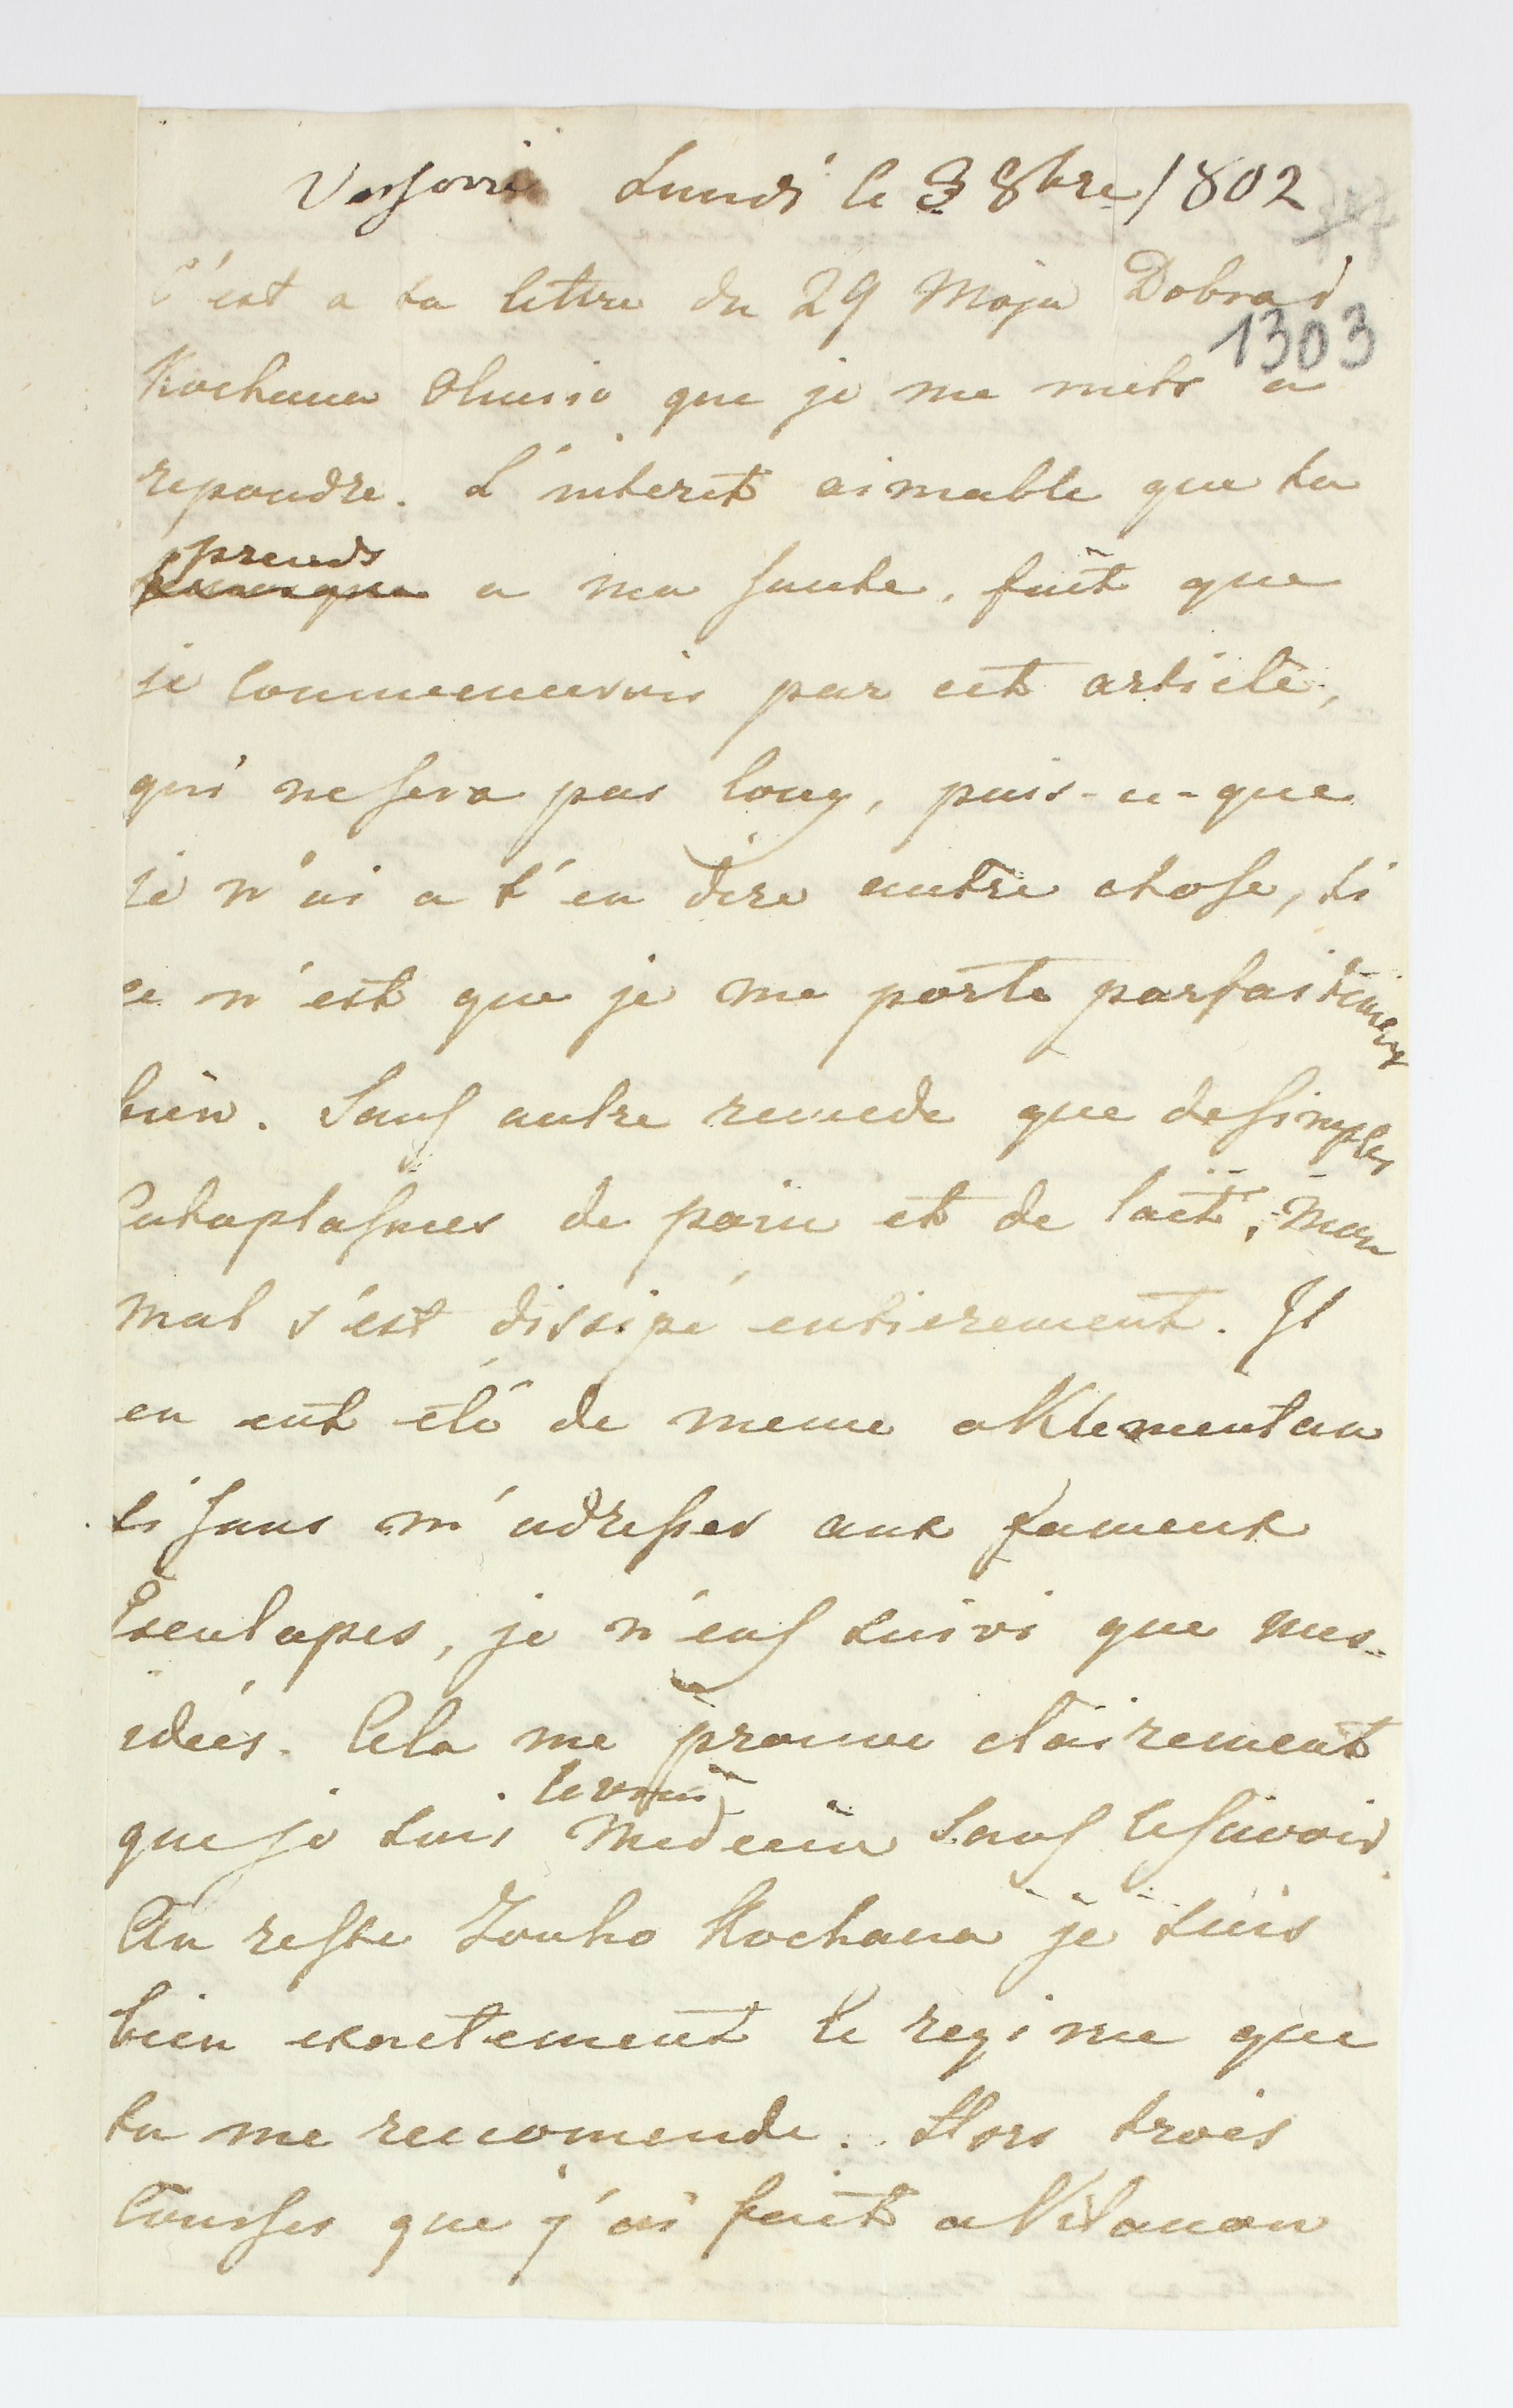 Varsovie Lundi le 3 8bre 1802
C'est a ta lettre du 29 Maja Dobra i
1303
Kochana Olusio que je me mets a
repondre. L'interet aimable que tu
prends
a ma sante, fait que
je commencerois par cet article,
qui ne sera pas long, puis-ce-que
je n'ai a t'en dire autre chose, si
ce n'est que je me porte parfaitement
bien. Sans autre remede que de simples
Cataplasmes de pain et de lait, mon
mal s'est dissipé entierement. Il
en eut eté de meme a Klementau
si sans m'adresser aux fameux
Esculapes, je n'eus suivi que mes
idées. Cela me prouve clairement
que je suis le vrai Medecin sans le savoir
Au reste Zonko Kochana je suis
bien exactement le regime que
tu me recomende. Hors trois
Courses que j'ai fait a Vilanow